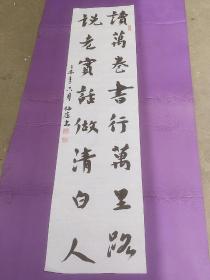 讀萬卷書行萬里路
說老實話做清白人